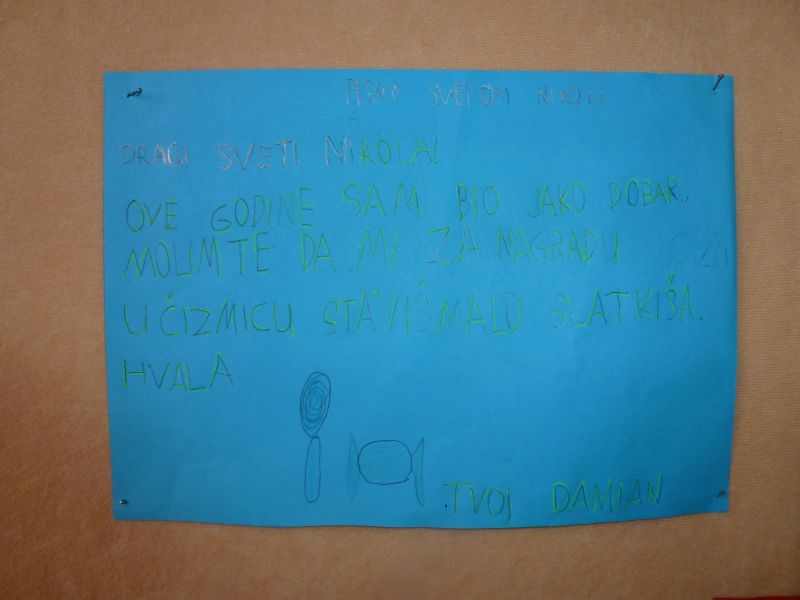 PISMO SVETOM NIKOLI
DRAGI SVETI NIKOLA!
OVE GODINE SAM BIO JAKO DOBAR.
MOLIM TE DA MI ZA NAGRADU ČIZM
U ČIZMICU STAVIŠ MALO SLATKIŠA.
HVALA
TVOJ DAMIAN